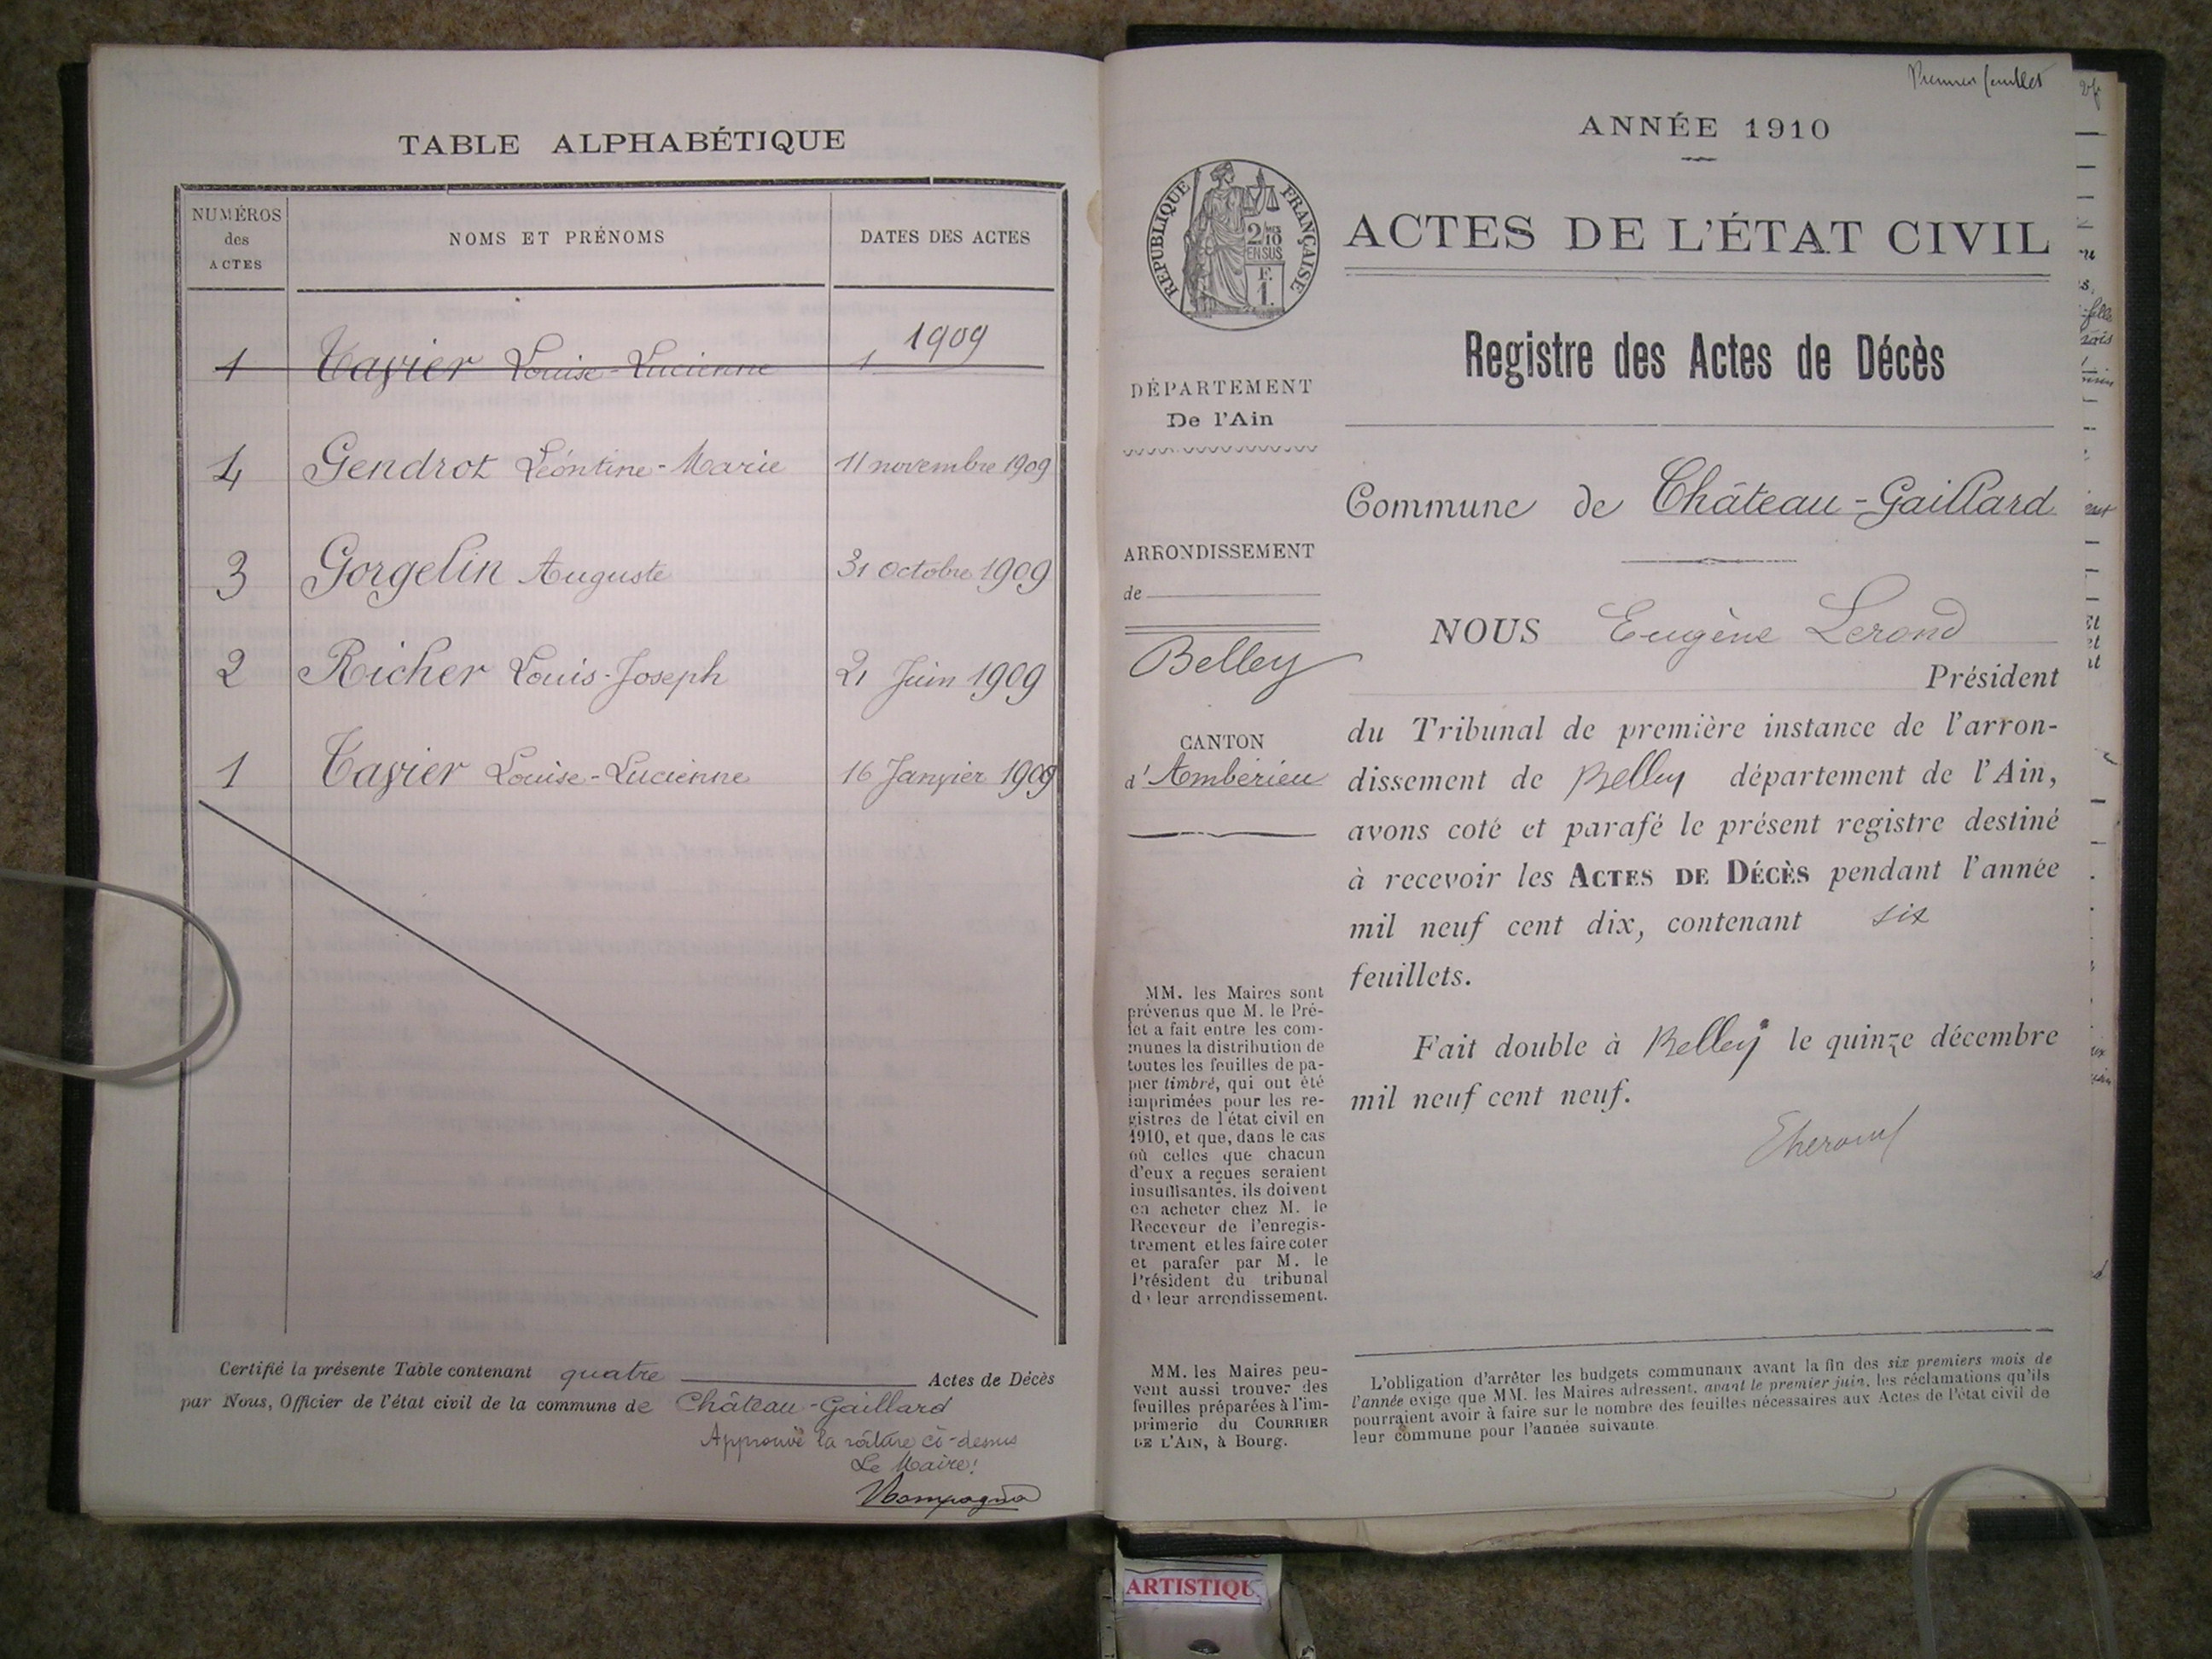 TABLE ALPHABÉTIQUE
NUMÉROS des ACTES
NOMS ET PRÉNOMS
DATES DES ACTES
1909
1 Tavier Louise-Lucienne 1
4 Gendrot Léontine-Marie 11 novembre 1909
3 Gorgelin Auguste 31 octobre 1909
2 Richer Louis-Joseph 21 Juin 1909
1 Tavier Louise-Lucienne 16 Janvier 1909
Certifié la présente Table contenant quatre Actes de Décès
par Nous, Officier de l'état civil de la commune de Château-Gaillard
Approuvé la râture ci-dessus
Le Maire:
Premier feuillet
ANNÉE 1910
RÉPUBLIQUE FRANÇAISE
2/10
EN SUS
F.
1.
ACTES DE L'ÉTAT CIVIL
Registre des Actes de Décès
DÉPARTEMENT
De l'Ain
Commune de Château-Gaillard
ARRONDISSEMENT
de
Belley
CANTON
d'Ambérieu
NOUS Eugène Lerond
Président
du Tribunal de première instance de l'arron-
dissement de Belley département de l'Ain,
avons coté et parafé le présent registre destiné
à recevoir les ACTES DE DÉCÈS pendant l'année
mil neuf cent dix, contenant six
feuillets.
Fait double à Belley le quinze décembre
mil neuf cent neuf.
MM. les Maires sont
prévenus que M. le Pré-
fet a fait entre les com-
munes la distribution de
toutes les feuilles de pa-
pier timbré, qui ont été
imprimées pour les re-
gistres de l'état civil en
1910, et que, dans le cas
où celles que chacun
d'eux a reçues seraient
insuffisantes, ils doivent
en acheter chez M. le
Receveur de l'enregis-
trement et les faire coter
et parafer par M. le
Président du tribunal
de leur arrondissement.
MM. les Maires peu-
vent aussi trouver des
feuilles préparées à l'im-
primerie du COURRIER
DE L'AIN, à Bourg.
L'obligation d'arrêter les budgets communaux avant la fin des six premiers mois de
l'année exige que MM. les Maires adressent, avant le premier juin, les réclamations qu'ils
pourraient avoir à faire sur le nombre des feuilles nécessaires aux Actes de l'état civil de
leur commune pour l'année suivante.
ARTISTIQU